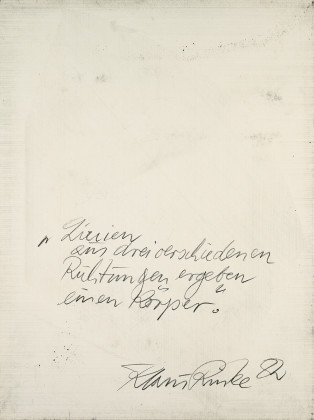 "Linien
aus drei verschiedenen
Richtungen ergeben
einen Körper".
Klaus Rinke 82